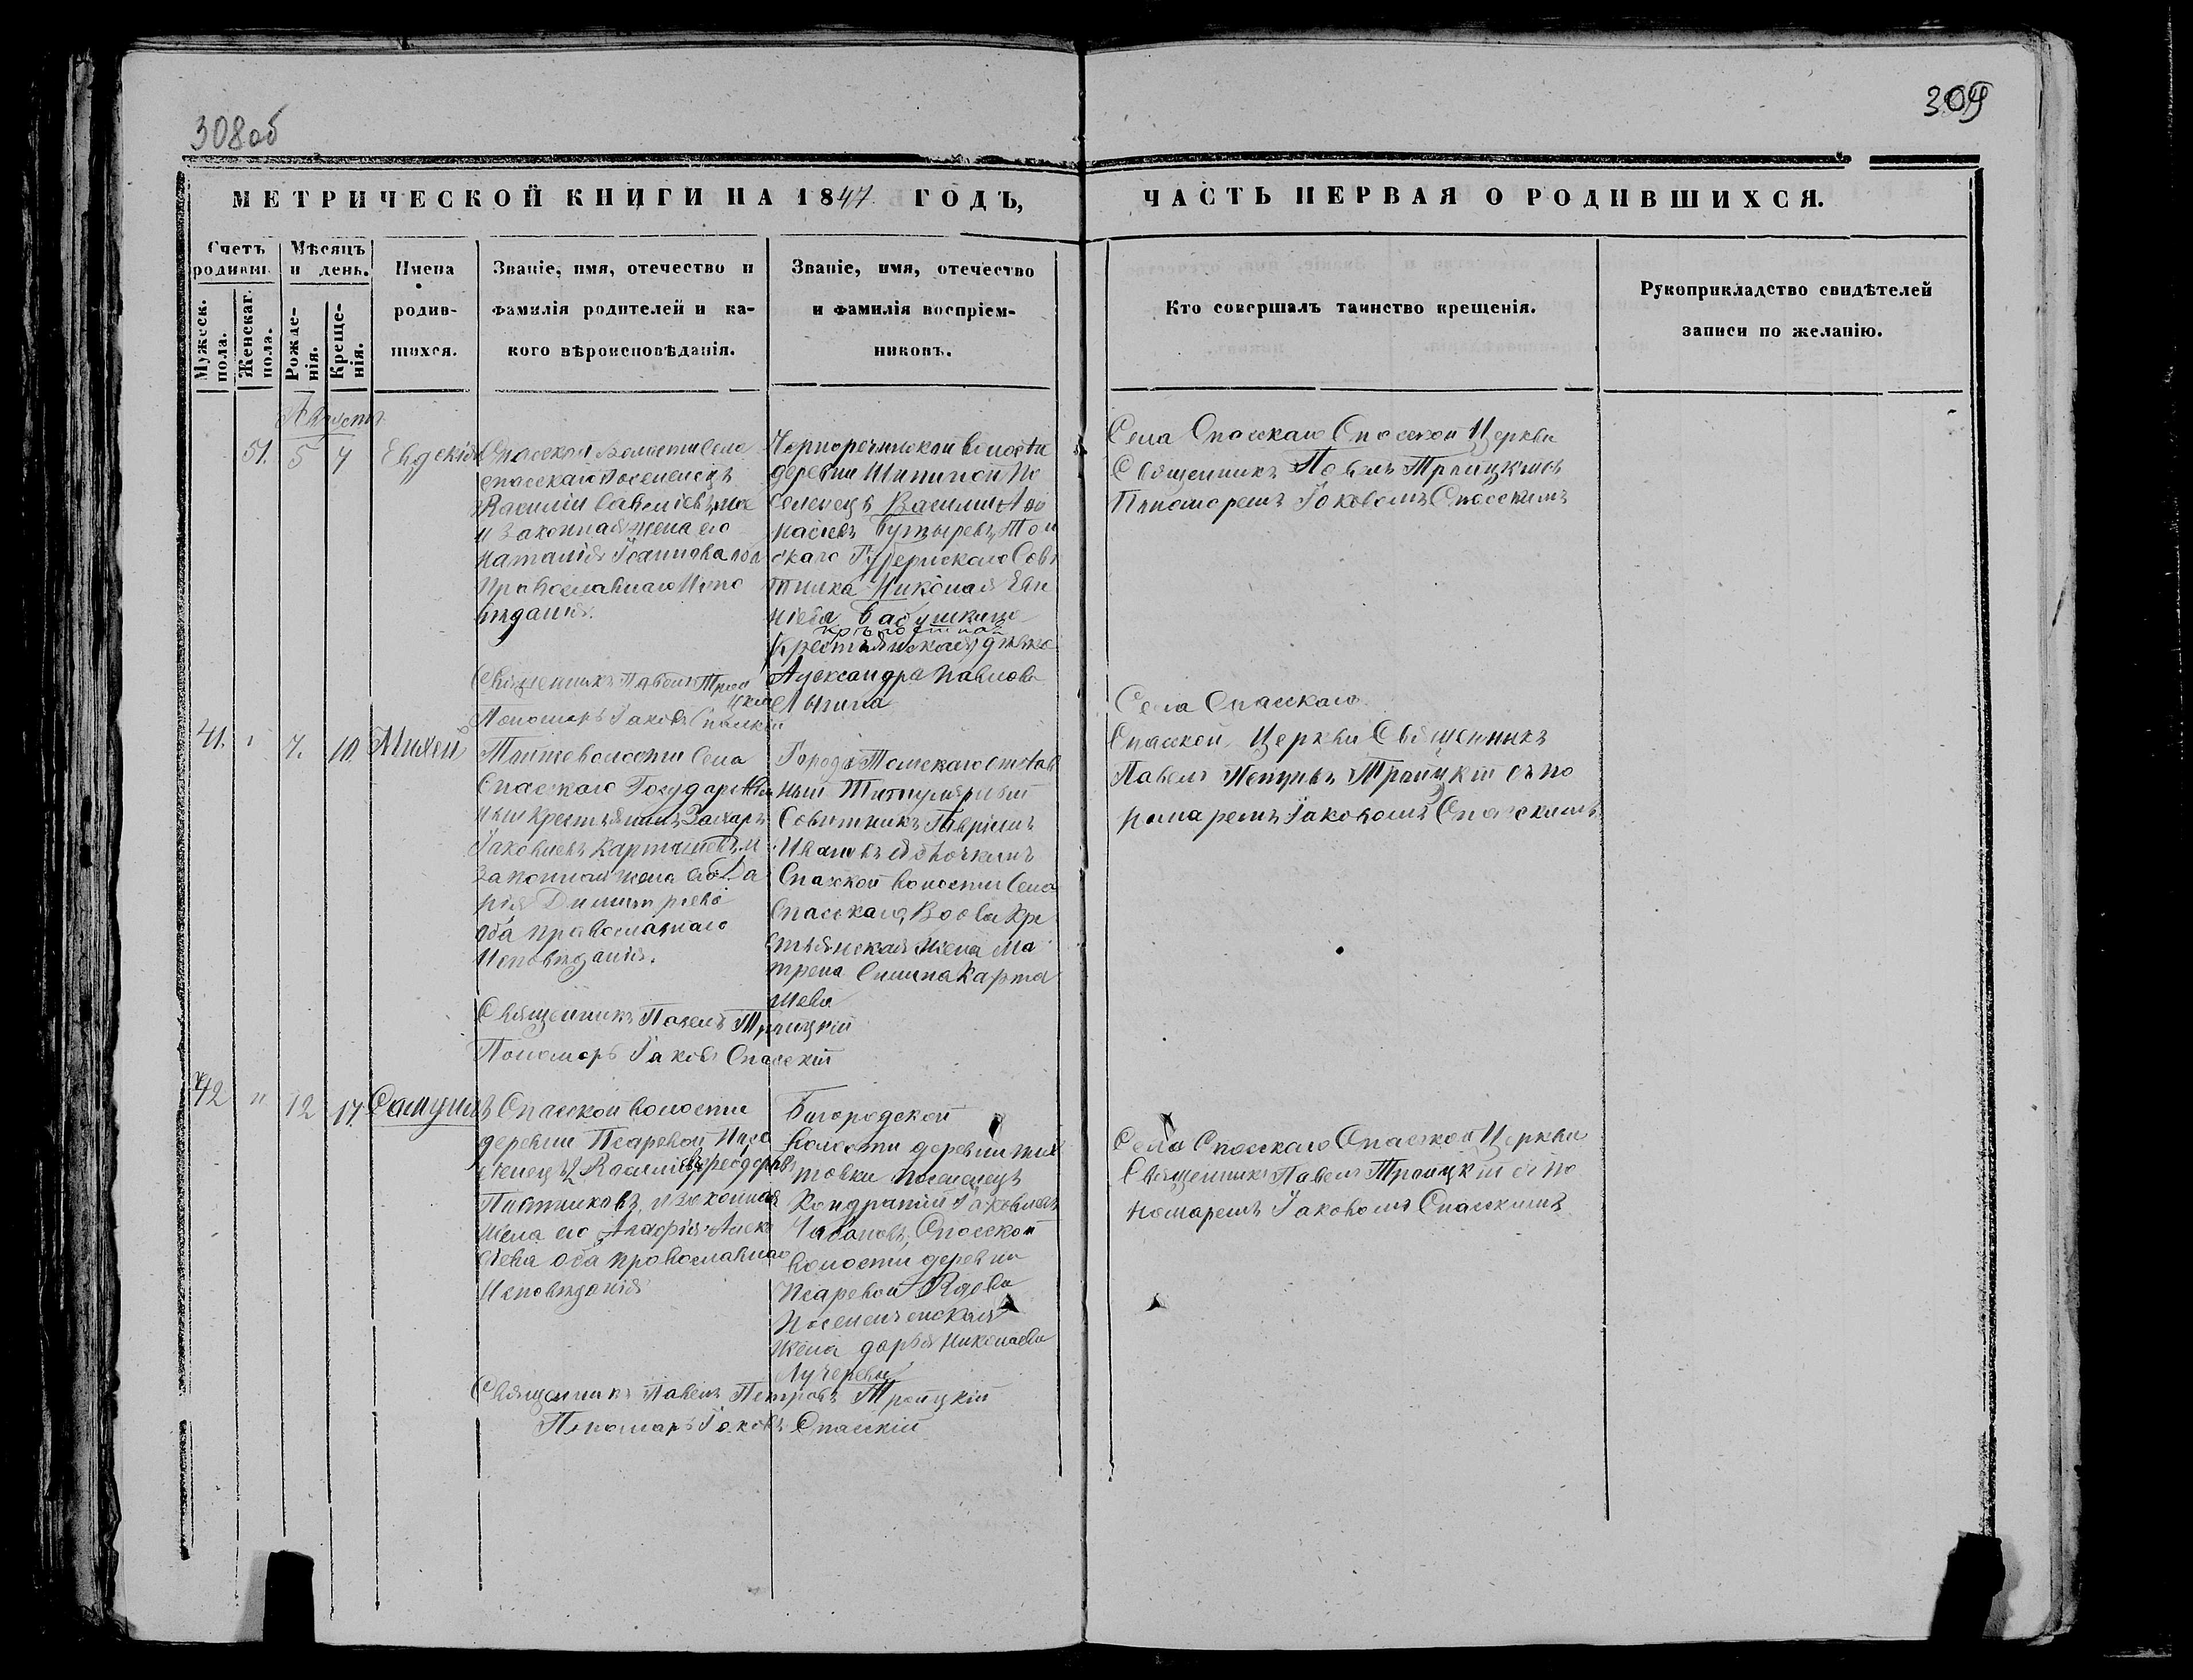 308об
309
МЕТРИЧЕСКОЙ КНИГИ НА 1847 ГОДЪ,
ЧАСТЬ ПЕРВАЯ О РОДИВШИХСЯ.
Счетъ родивш.
Мужеск. пола.
Женскаг. пола.
Мѣсяцъ и день.
Рожденія.
Крещенія.
Имена
родив-
шихся.
Званіе, имя, отечество и
фамилія родителей и ка-
кого вѣроисповѣданія.
Званіе, имя, отечество
и фамилія воспріем-
никовъ.
Кто совершалъ таинство крещенія.
Рукоприкладство свидѣтелей
записи по желанію.
Августъ
51. 5 7 Евдокія
Спаской волости села
спаскаго поселенецъ
Василій
и законная жена его
Наталія Іоаннова
Православнаго Испо
вѣданія.
Священникъ Павелъ Трои
цкій
Пономарь Іаковъ Спаскій
Чернореченской волости
деревни Шипиной По
селенецъ Василий Афо
насіевъ Бутыревъ, Том
скаго Губернскаго Совѣ
тника Николая Евг
ніева Бабушкина
крѣпостная
Крестьянская дѣвка
Александра Павлова
Села Спасскаго Спасской Церкви
Священникъ Павелъ Троицкій съ
Пономаремъ Іаковомъ Спасскимъ
41. " 7. 10 Михей
Тойже волости Села
Спаскаго Государствен
ный крестьянинъ Захаръ
Іаковлевъ Карташевъ и
законная жена его Да
рія Димитріева
оба православнаго
Исповѣданія.
Священникъ Павелъ Троицкій
Пономарь Іаковъ Спасскій
Города Томскаго отстав
ный Титулярный
Совѣтникъ Гавріилъ
Ивановъ
Спаской волости Села
Спасскаго, Вдова Кре
стьянская жена Ма
трена Карта
шева
Села Спасскаго
Спаской Церкви Священникъ
Павелъ Петровъ Троицкій съ по
номаремъ Іаковомъ Спасскимъ
42 " 12 17 Самуилъ
Спаской волости
деревни Псаревой Посе
ленецъ Феодоръ
Пивтиковъ, и законная
жена его Агафія Алекс
ѣева оба православнаго
Исповѣданія
Священникъ Павелъ Петровъ Троицкій
Пономарь Іаковъ Спасскій
Богородской
волости деревни
товки поселенецъ
Кондратій Іаковлевъ
Чабановъ, Спасской
волости деревни
Псаревой Вдова
Поселенческая
жена Дарья Николаева
Лучерева
Села Спасскаго Спасской Церкви
Священникъ Павелъ Троицкій съ по
номаремъ Іаковомъ Спасскимъ